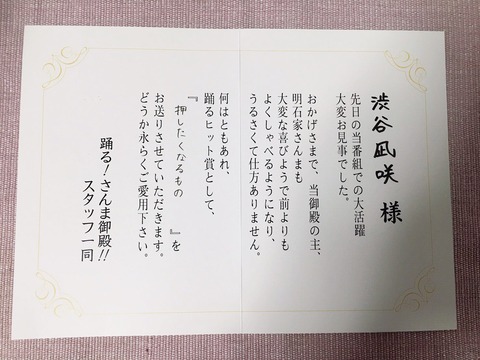 渋谷凪咲 様
先日の当番組での大活躍
大変お見事でした。
おかげさまで、当御殿の主、
明石家さんまも
大変な喜びようで前よりも
よくしゃべるようになり、
うるさくて仕方ありません。
何はともあれ、
踊るヒット賞として、
『 押したくなるもの 』を
お送りさせていただきます。
どうか永らくご愛用下さい。
踊る!さんま御殿!!
スタッフ一同